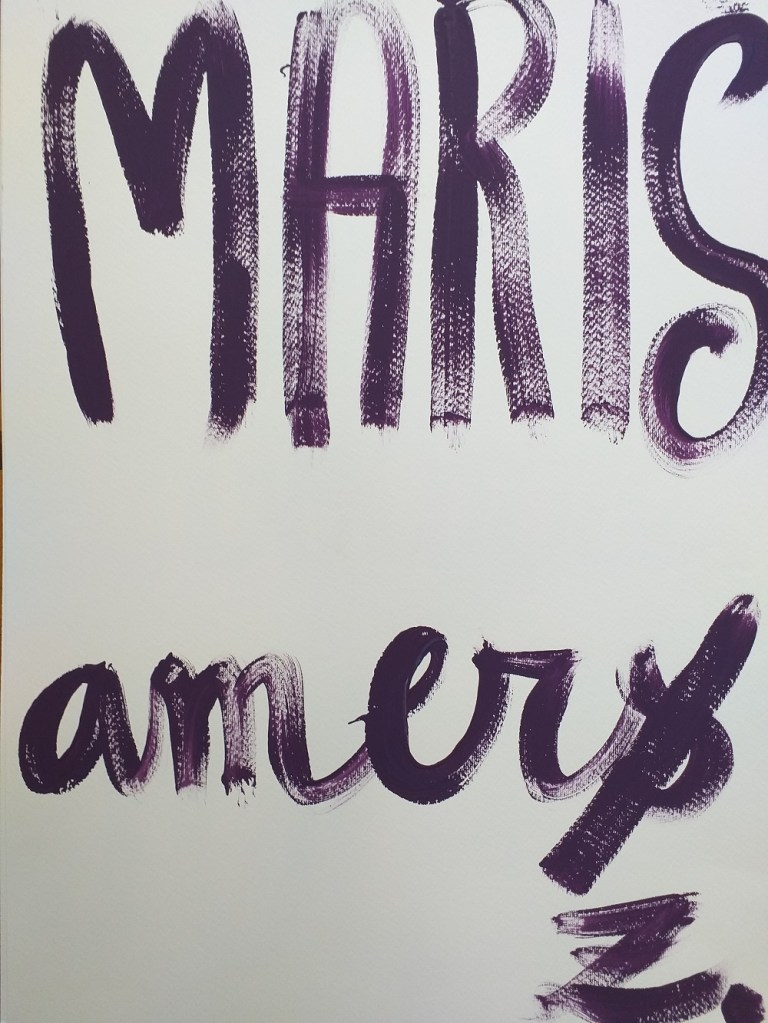 MARIS
amers
z.